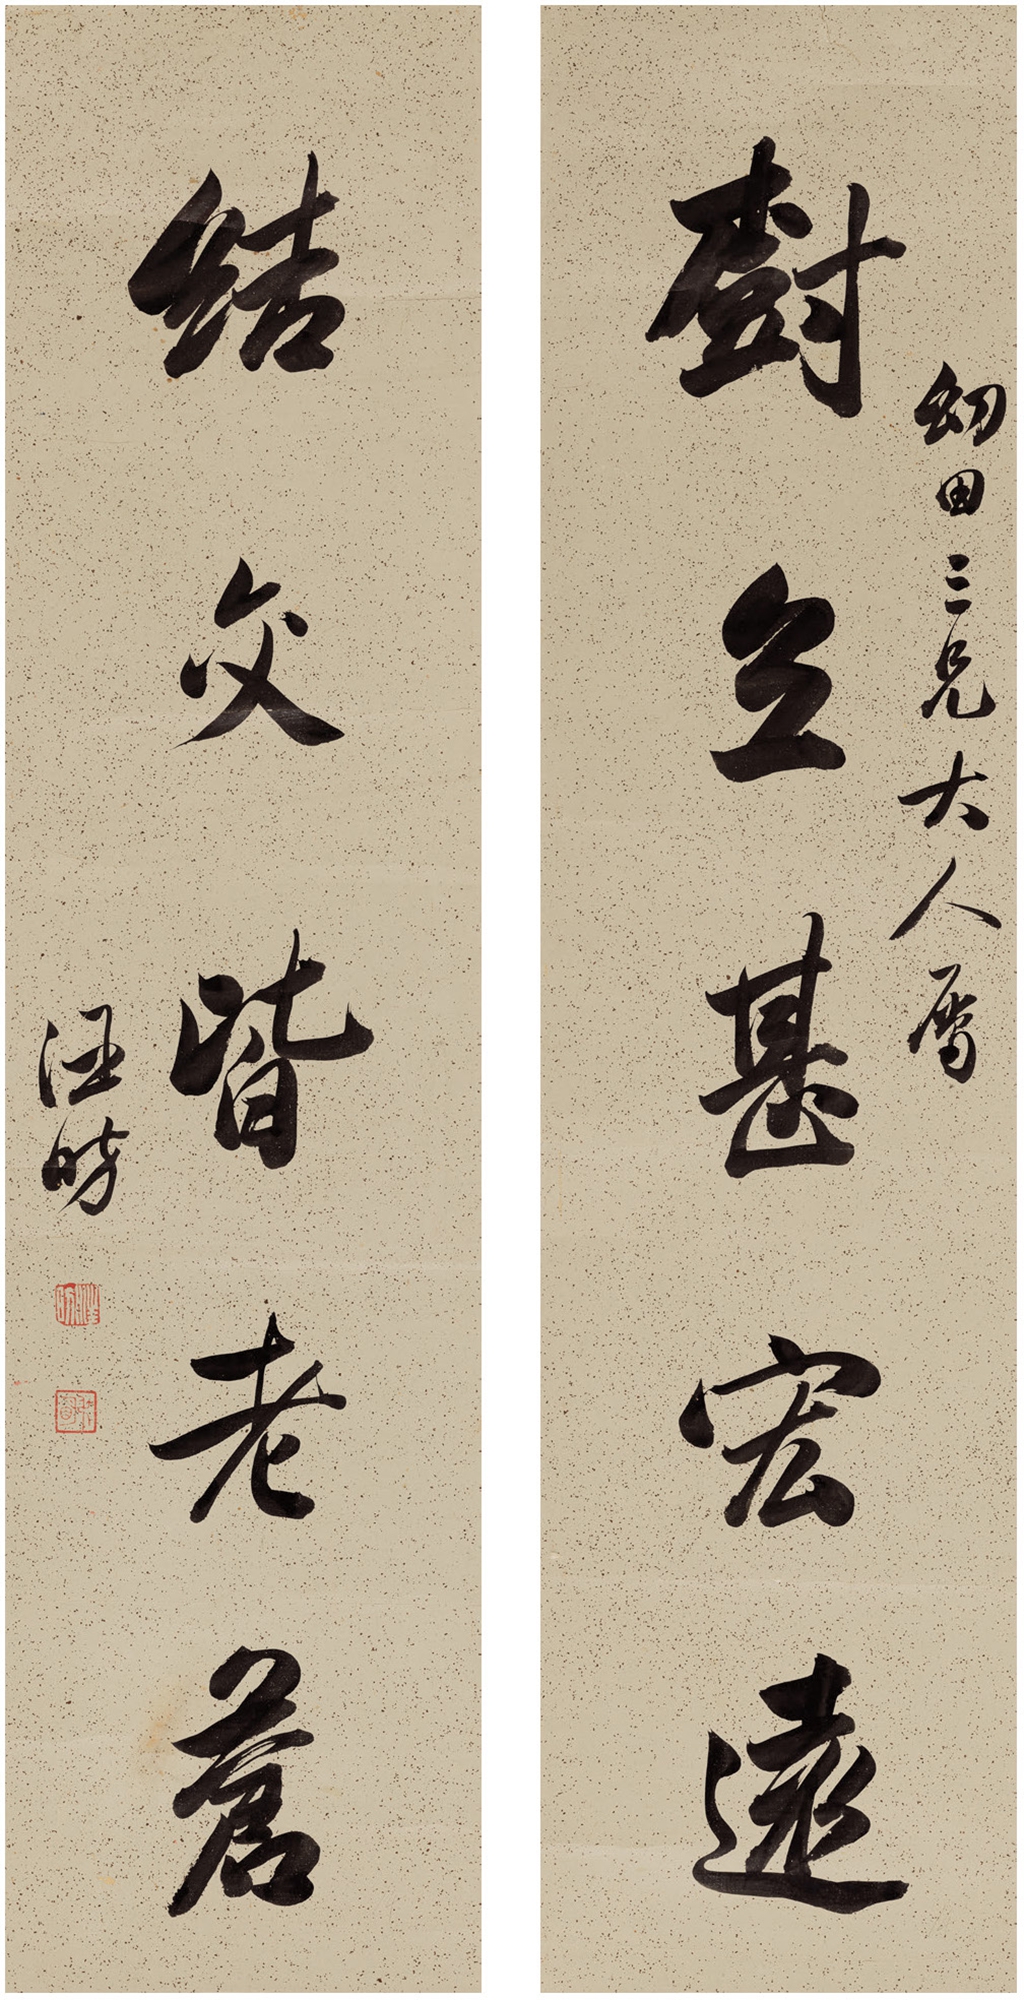 幼田三兄大人属
樹立甚宏遠
結交皆老蒼
汪昉